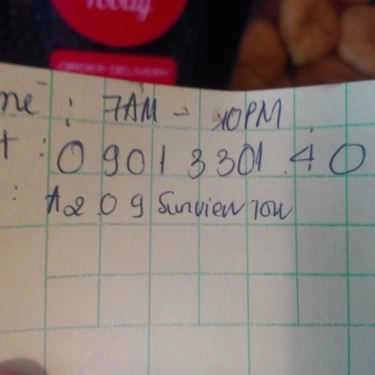 Today
ORDER DELIVERY
me : 7AM - 10PM
t : 0901 3301 40
: A209 Sunview Tow